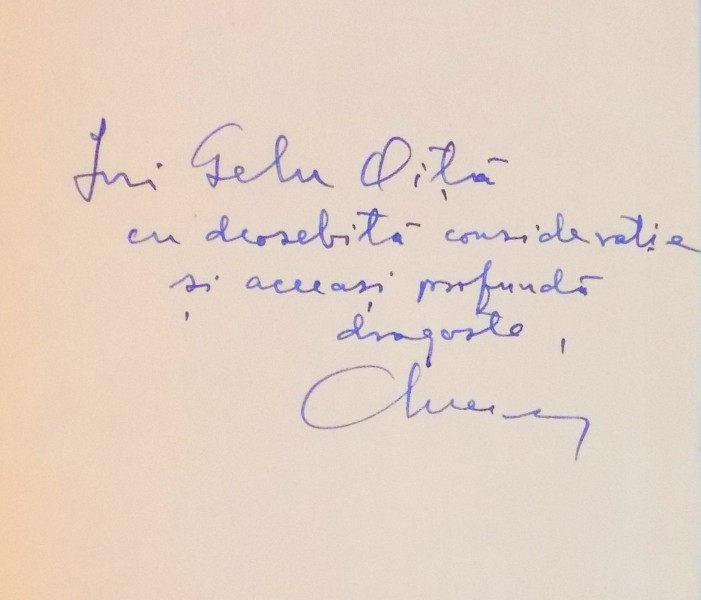 Lui Gelu Oiță
cu deosebită considerație
și aceeași profundă
dragoste,